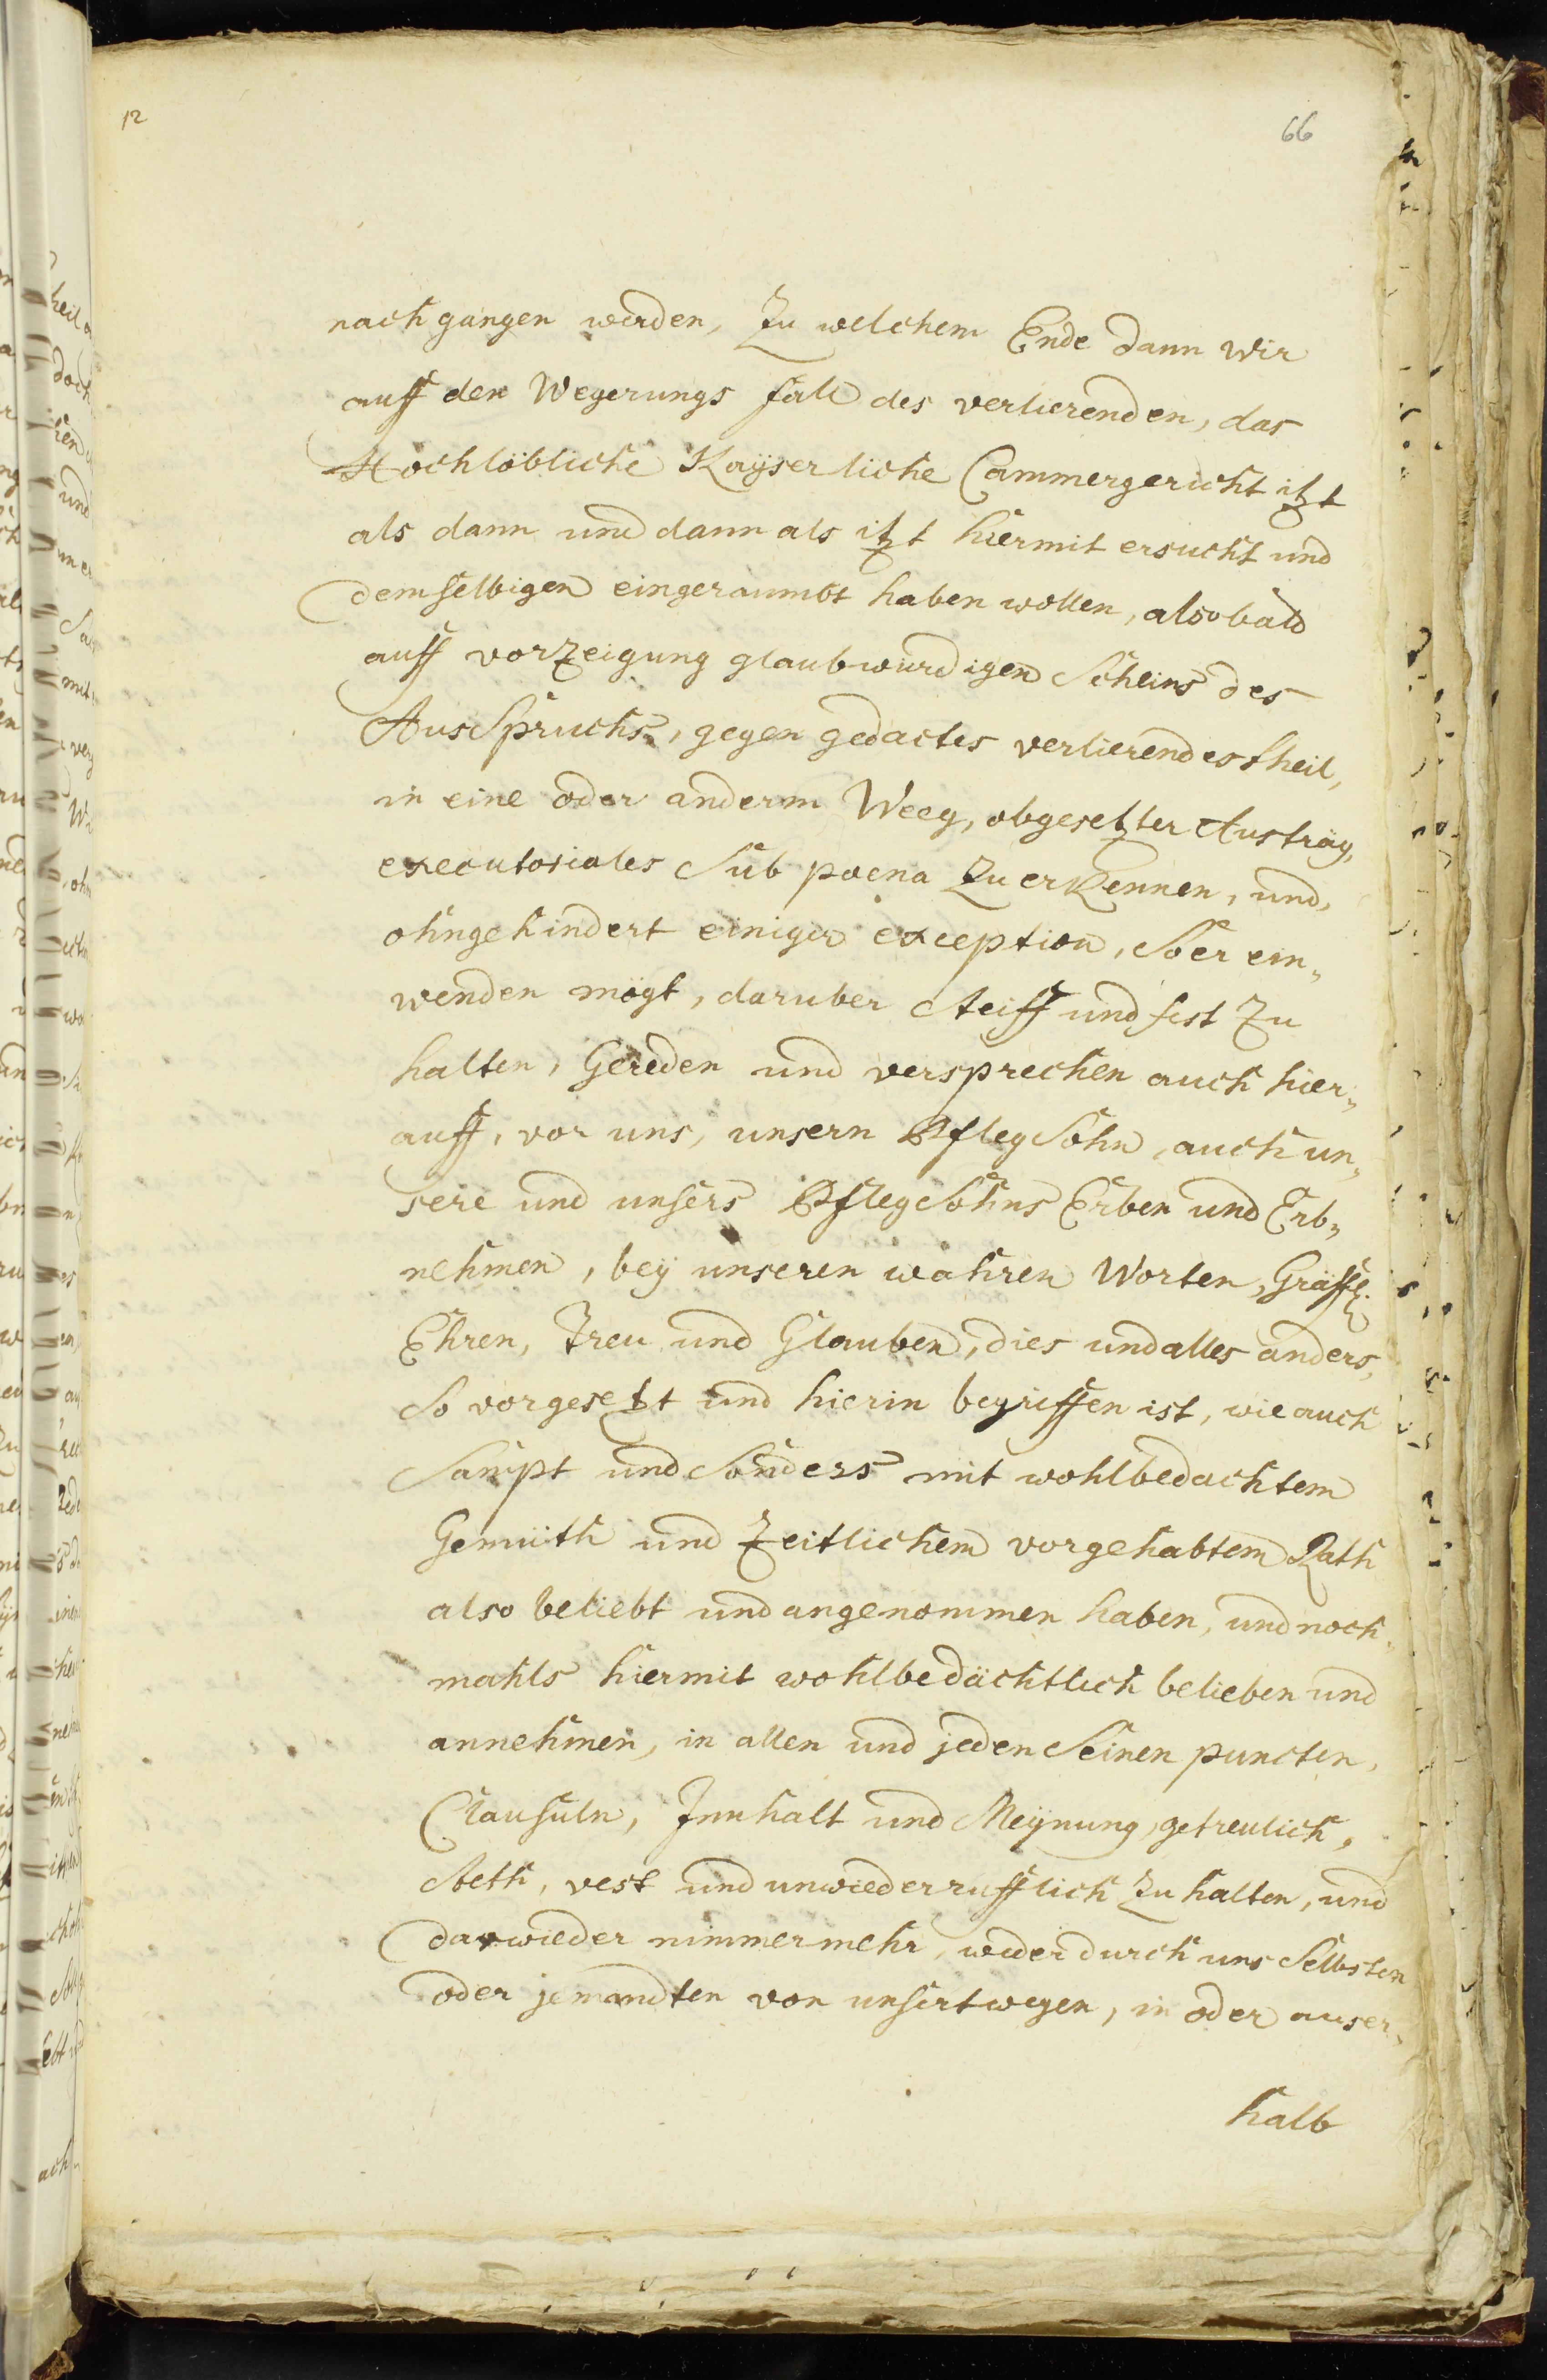 12
66
nachgangen werden, Zu welchem Ende dann wir
auff den Wegerungs fall des verlierenden, das
Hochlöbliche Kayserliche Cammergericht itzt
als dann und dann als itzt hiermit ersucht und
demselbigen eingeraumbt haben wollen, alsobald
auff vorzeigung glaubwürdigen Scheins des
AusSpruchs, gegen gedactes verlierendes theil,
in eine oder anderm Weeg, obgesetzter Austräg,
executoriales Sub poena Zu erkennen, und,
ohngehindert einiger exception, So er ein„
wenden mögt, daruber steiff und fest Zu
halten, Gereden und versprechen auch hier„
auff, vor uns, unsern PflegSohn, auch un„
sere und unsers PflegSohns Erben und Erb„
nehmen, bey unseren wahren Worten, Gräffl.
Ehren, Treu und Glauben, dies und alles anders,
So vorgesetzt und hierin begriffen ist, wie auch
Sampt und Sonders mit wohlbedachtem
Gemüth und Zeitlichem vorgehabtem Rath
also beliebt und angenommen haben, und noch„
mahls hiermit wohlbedächtlich belieben und
annehmen, in allen und jeden Seinen puncten,
Clausuln, Innhalt und Meynung, getreulich,
steth, vest und unwiederrufflich Zu halten, und
darwieder nimmermehr, weder durch uns Selbsten
oder jemandten von unsertwegen, in oder auser„
halb